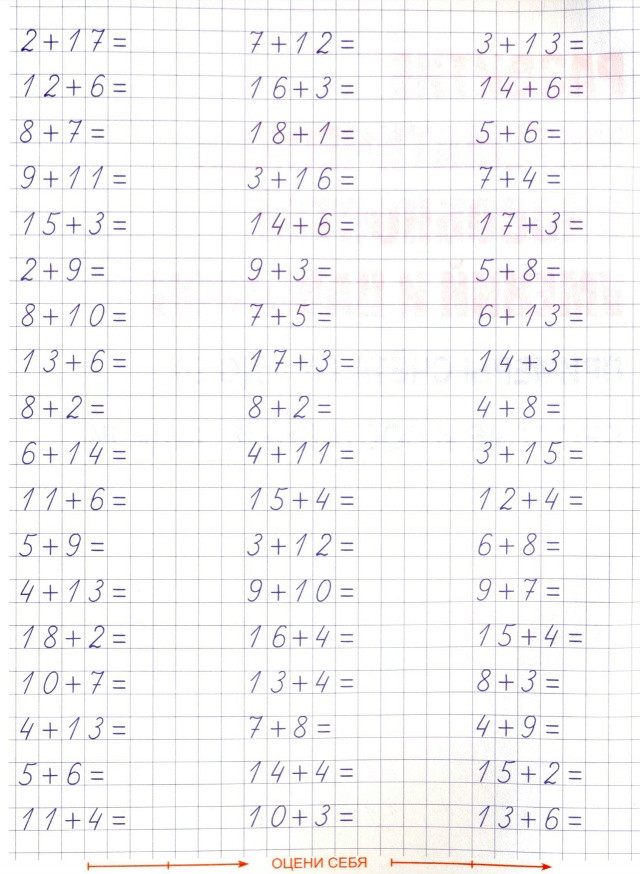 2+17= 7+12= 3+13=
12+6= 16+3= 14+6=
8+7= 18+1= 5+6=
9+11= 3+16= 7+4=
15+3= 14+6= 17+3=
2+9= 9+3= 5+8=
8+10= 7+5= 6+13=
13+6= 17+3= 14+3=
8+2= 8+2= 4+8=
6+14= 4+11= 3+15=
11+6= 15+4= 12+4=
5+9= 3+12= 6+8=
4+13= 9+10= 9+7=
18+2= 16+4= 15+4=
10+7= 13+4= 8+3=
4+13= 7+8= 4+9=
5+6= 14+4= 15+2=
11+4= 10+3= 13+6=
ОЦЕНИ СЕБЯ